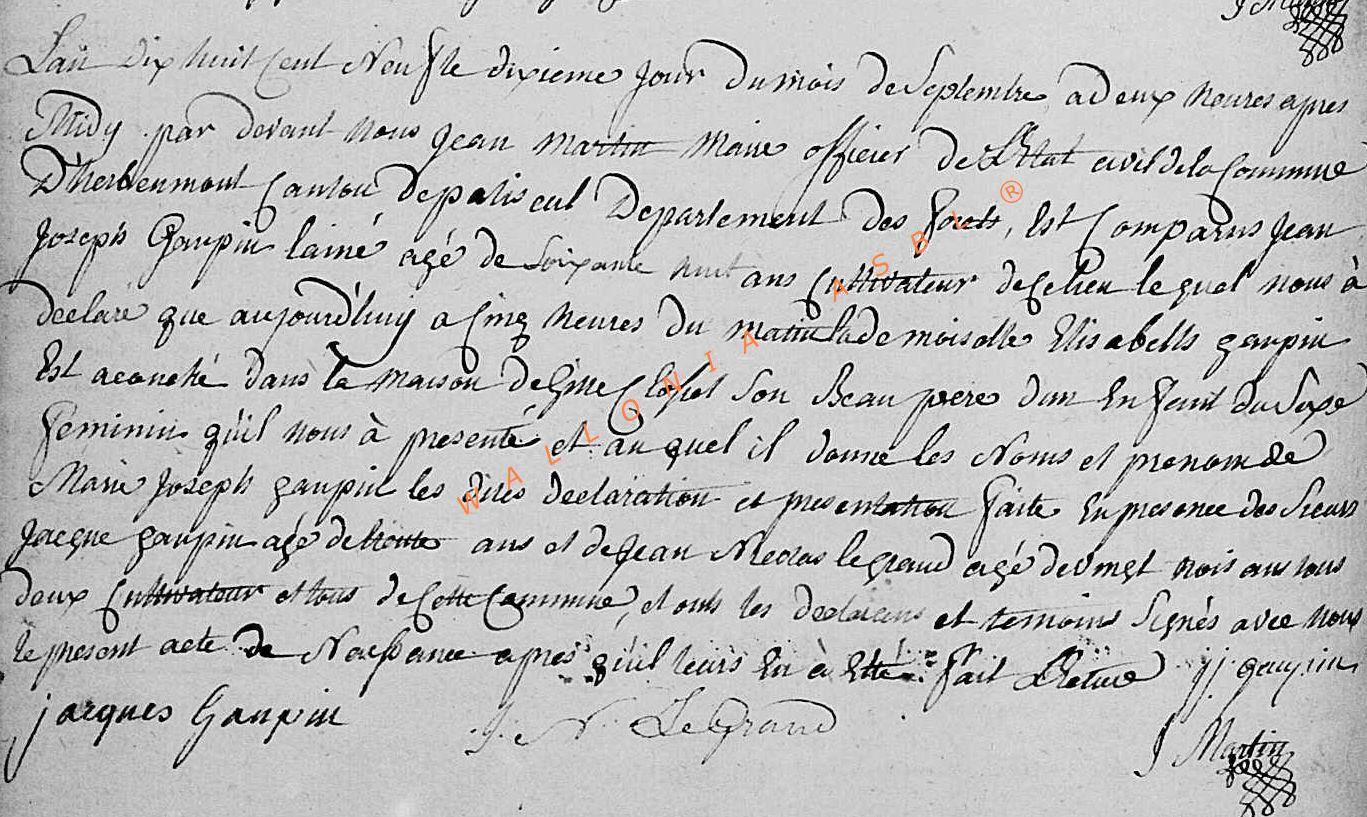 J Martin
Lan Dix huit Cent Neuf le dixieme jour du mois de Septembre a deux heures apres
Midy par devant nous Jean Martin Maire officier de L'Etat civil de la Commune
D'herbeumont Canton de paliseul Departement des forets, Est Comparus Jean
Joseph Gaupin lainé agé de Soixante huit ans Cultivateur de Ce lieu lequel nous à
declaré que aujourd'huy a Cinq heures du matin la demoiselle Elisabeth gaupin
Est acouché dans la maison de Son Beau pere dun Enfant du Sexe
feminin qu'il nous à presenté et auquel il donne les Noms et prenom de
Marie Joseph gaupin les dites declaration et presentation faite En presence des Sieurs
Jacque gaupin agé de trente ans et de Jean Nicolas legrand agé de vingt trois ans tous
deux Cultivateur et tous de Cette Commune, et onts les declarans et temoins Signés avec nous
le present acte de Naissance apres qu'il leurs En à Etté fait Lecture jj gaupin
jacques Gaupin J. N. LeGrand
J Martin
WALLONIA ASBL ®